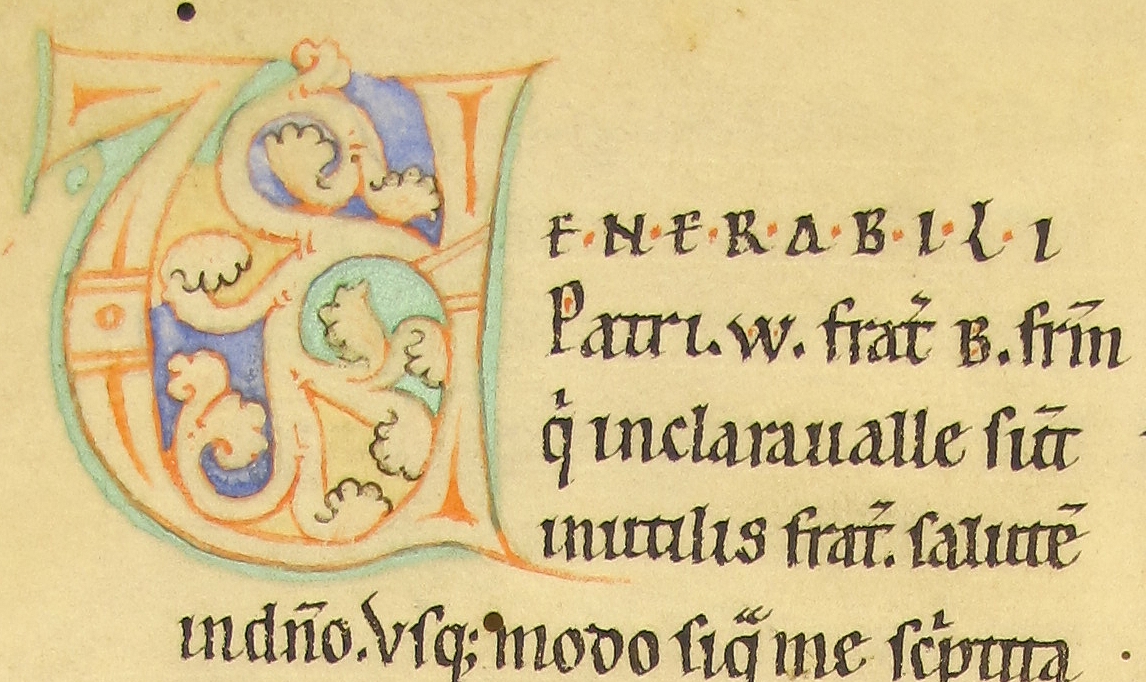 VENERABILI
Patri. w. frat̄ B. fr̄m
q̇ inclarauualle sūt
inutilis frat̄. salutē
indn̄o. Vsq; modo siq̄ me sc̄ptita